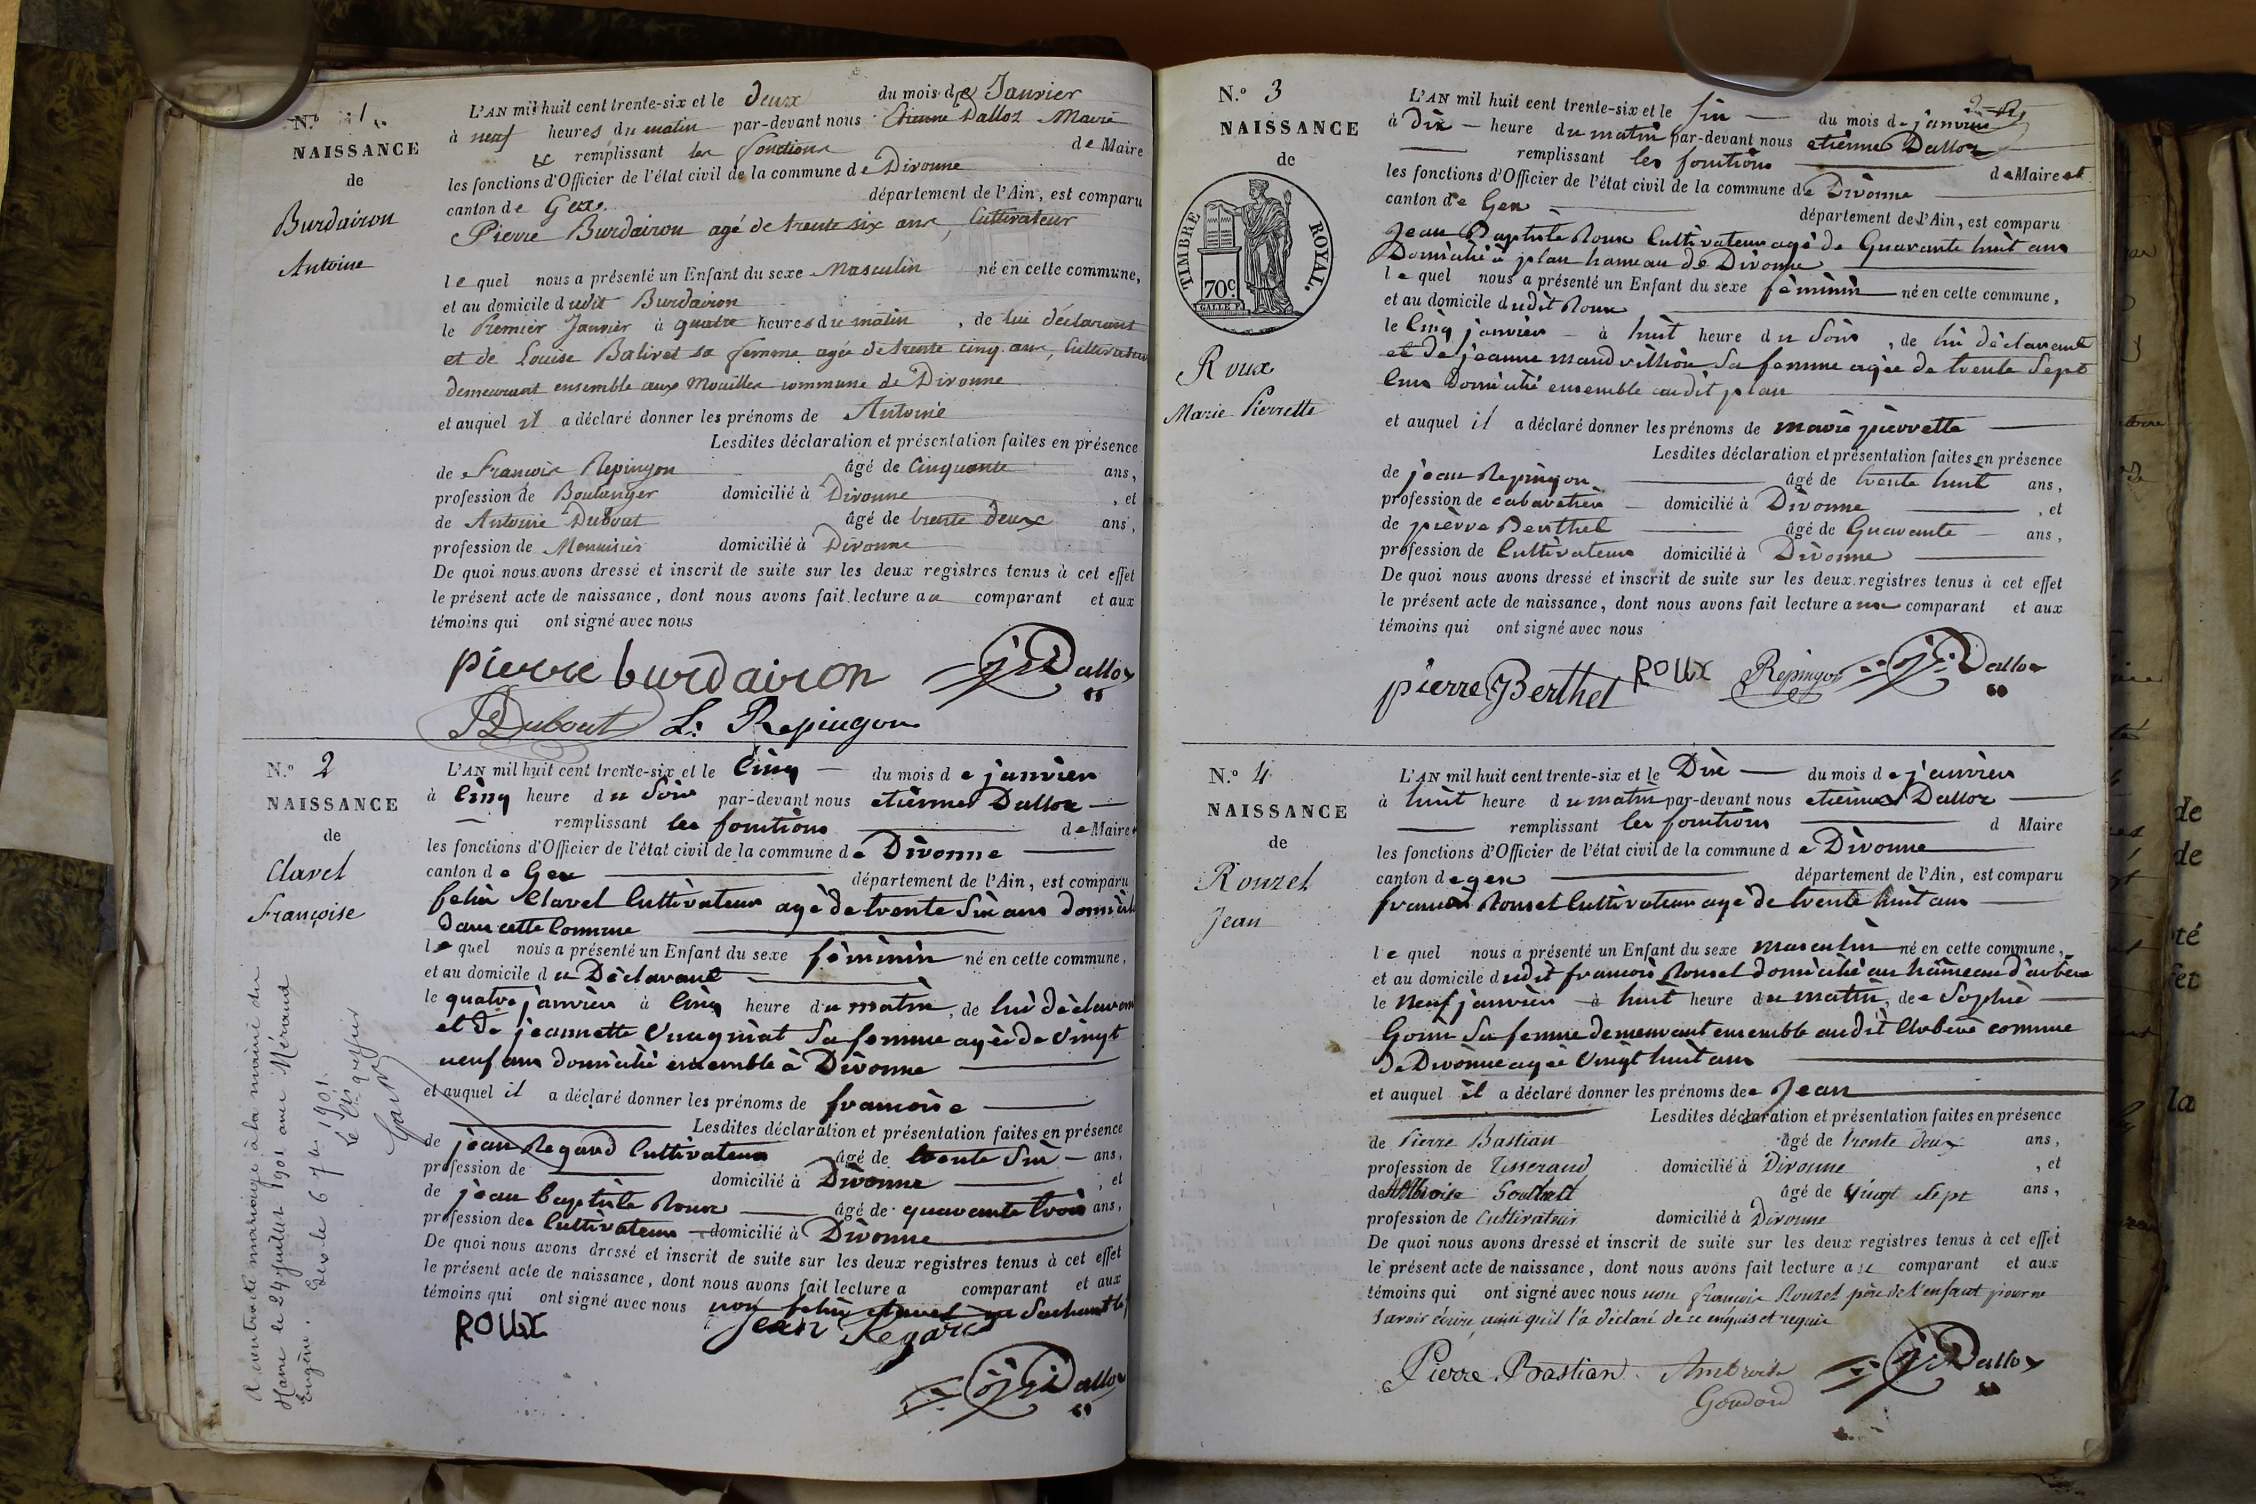 N.º 1.
NAISSANCE
de
Burdairon
Antoine
L'AN mil huit cent trente-six et le deux du mois de Janvier
à neuf heures du matin par-devant nous Etienne Dalloz Maire
remplissant les fonctions de Maire
les fonctions d'Officier de l'état civil de la commune de Divonne
canton de Gex département de l'Ain, est comparu
Pierre Burdairon agé de trente six ans, Cultivateur
le quel nous a présenté un Enfant du sexe Masculin né en cette commune,
et au domicile dudit Burdairon
le Premier Janvier à quatre heures du matin, de lui déclarant
et de Louise Balivet sa femme agée de trente cinq ans, Cultivateur
demeurant ensemble aux Mouilles commune de Divonne
et auquel il a déclaré donner les prénoms de Antoine
Lesdites déclaration et présentation faites en présence
de François Repingon âgé de Cinquante ans,
profession de Boulanger domicilié à Divonne, et
de Antoine Dubout âgé de trente deux ans,
profession de Menuisier domicilié à Divonne
De quoi nous avons dressé et inscrit de suite sur les deux registres tenus à cet effet
le présent acte de naissance, dont nous avons fait lecture au comparant et aux
témoins qui ont signé avec nous
pierre burdairon Dalloz
Dubout Repingon
N.º 2
NAISSANCE
de
Clavel
Françoise
A contracté mariage à la mairie du
Havre le 24 juillet 1901 avec Méraud
Eugène.
le 6 7bre 1901.
Le greffier
L'AN mil huit cent trente-six et le Cinq du mois de janvier
à Cinq heure du Soir par-devant nous etienne Dalloz
remplissant les fonctions de Maire
les fonctions d'Officier de l'état civil de la commune de Divonne
canton de Gex département de l'Ain, est comparu
felix Clavel Cultivateur agé de trente Six ans domicilié
dans cette Commune
le quel nous a présenté un Enfant du sexe féminin né en cette commune,
et au domicile du Déclarant
le quatre janvier à Cinq heure du matin, de lui déclarant
et de jeannette Vuagniat Sa femme agée de Vingt
neuf ans domicilié ensemble à Divonne
et auquel il a déclaré donner les prénoms de francoise
Lesdites déclaration et présentation faites en présence
de jean Regard Cultivateur âgé de trente Six ans,
profession de domicilié à Divonne, et
de jean baptiste Roux âgé de quarante trois ans,
profession de Cultivateur domicilié à Divonne
De quoi nous avons dressé et inscrit de suite sur les deux registres tenus à cet effet
le présent acte de naissance, dont nous avons fait lecture a comparant et aux
témoins qui ont signé avec nous non felix Clavel Sachant
ROUX Jean Regard
Dalloz
N.º 3
NAISSANCE
de
TIMBRE ROYAL.
70C
Roux
Marie Pierrette
L'AN mil huit cent trente-six et le Six du mois de janvier
à Dix heure du matin par-devant nous etienne Dalloz
remplissant les fonctions de Maire et
les fonctions d'Officier de l'état civil de la commune de Divonne
canton de Gex département de l'Ain, est comparu
Jean Baptiste Roux Cultivateur agé de Quarante huit ans
Domicilié à plan hameau de Divonne
le quel nous a présenté un Enfant du sexe féminin né en cette commune,
et au domicile dudit Roux
le Cinq janvier à huit heure du Soir, de lui déclarant
et de jeanne mandrillion Sa femme agée de trente Sept
ans Domicilié ensemble audit plan
et auquel il a déclaré donner les prénoms de marie pierrette
Lesdites déclaration et présentation faites en présence
de jean Repingon âgé de trente huit ans,
profession de cabaretier domicilié à Divonne, et
de pierre Berthet âgé de Quarante ans,
profession de Cultivateur domicilié à Divonne
De quoi nous avons dressé et inscrit de suite sur les deux registres tenus à cet effet
le présent acte de naissance, dont nous avons fait lecture au comparant et aux
témoins qui ont signé avec nous
pierre Berthet ROUX Repingon Dalloz
N.º 4
NAISSANCE
de
Rouzet
Jean
L'AN mil huit cent trente-six et le Dix du mois de janvier
à huit heure du matin par-devant nous etienne Dalloz
remplissant les fonctions d Maire
les fonctions d'Officier de l'état civil de la commune de Divonne
canton de gex département de l'Ain, est comparu
francois Rouset Cultivateur agé de trente huit ans
le quel nous a présenté un Enfant du sexe masculin né en cette commune,
et au domicile dudit francois Rouset domicilié au hameau d'arbère
le Neuf janvier à huit heure du matin, de Sophie
Goin Sa femme demeurant ensemble audit Arbere commune
de Divonne agée Vingt huit ans
et auquel il a déclaré donner les prénoms de Jean
Lesdites déclaration et présentation faites en présence
de Pierre Bastian âgé de trente deux ans,
profession de Tisserand domicilié à Divonne, et
de Ambroise âgé de Vingt sept ans,
profession de Cultivateur domicilié à Divonne
De quoi nous avons dressé et inscrit de suite sur les deux registres tenus à cet effet
le présent acte de naissance, dont nous avons fait lecture au comparant et aux
témoins qui ont signé avec nous non françois Rouzet père de l'enfant pour ne
savoir écrire, ainsi qu'il l'a déclaré de ce enquis et requis
Pierre Bastian Ambroise Dalloz
Goudard